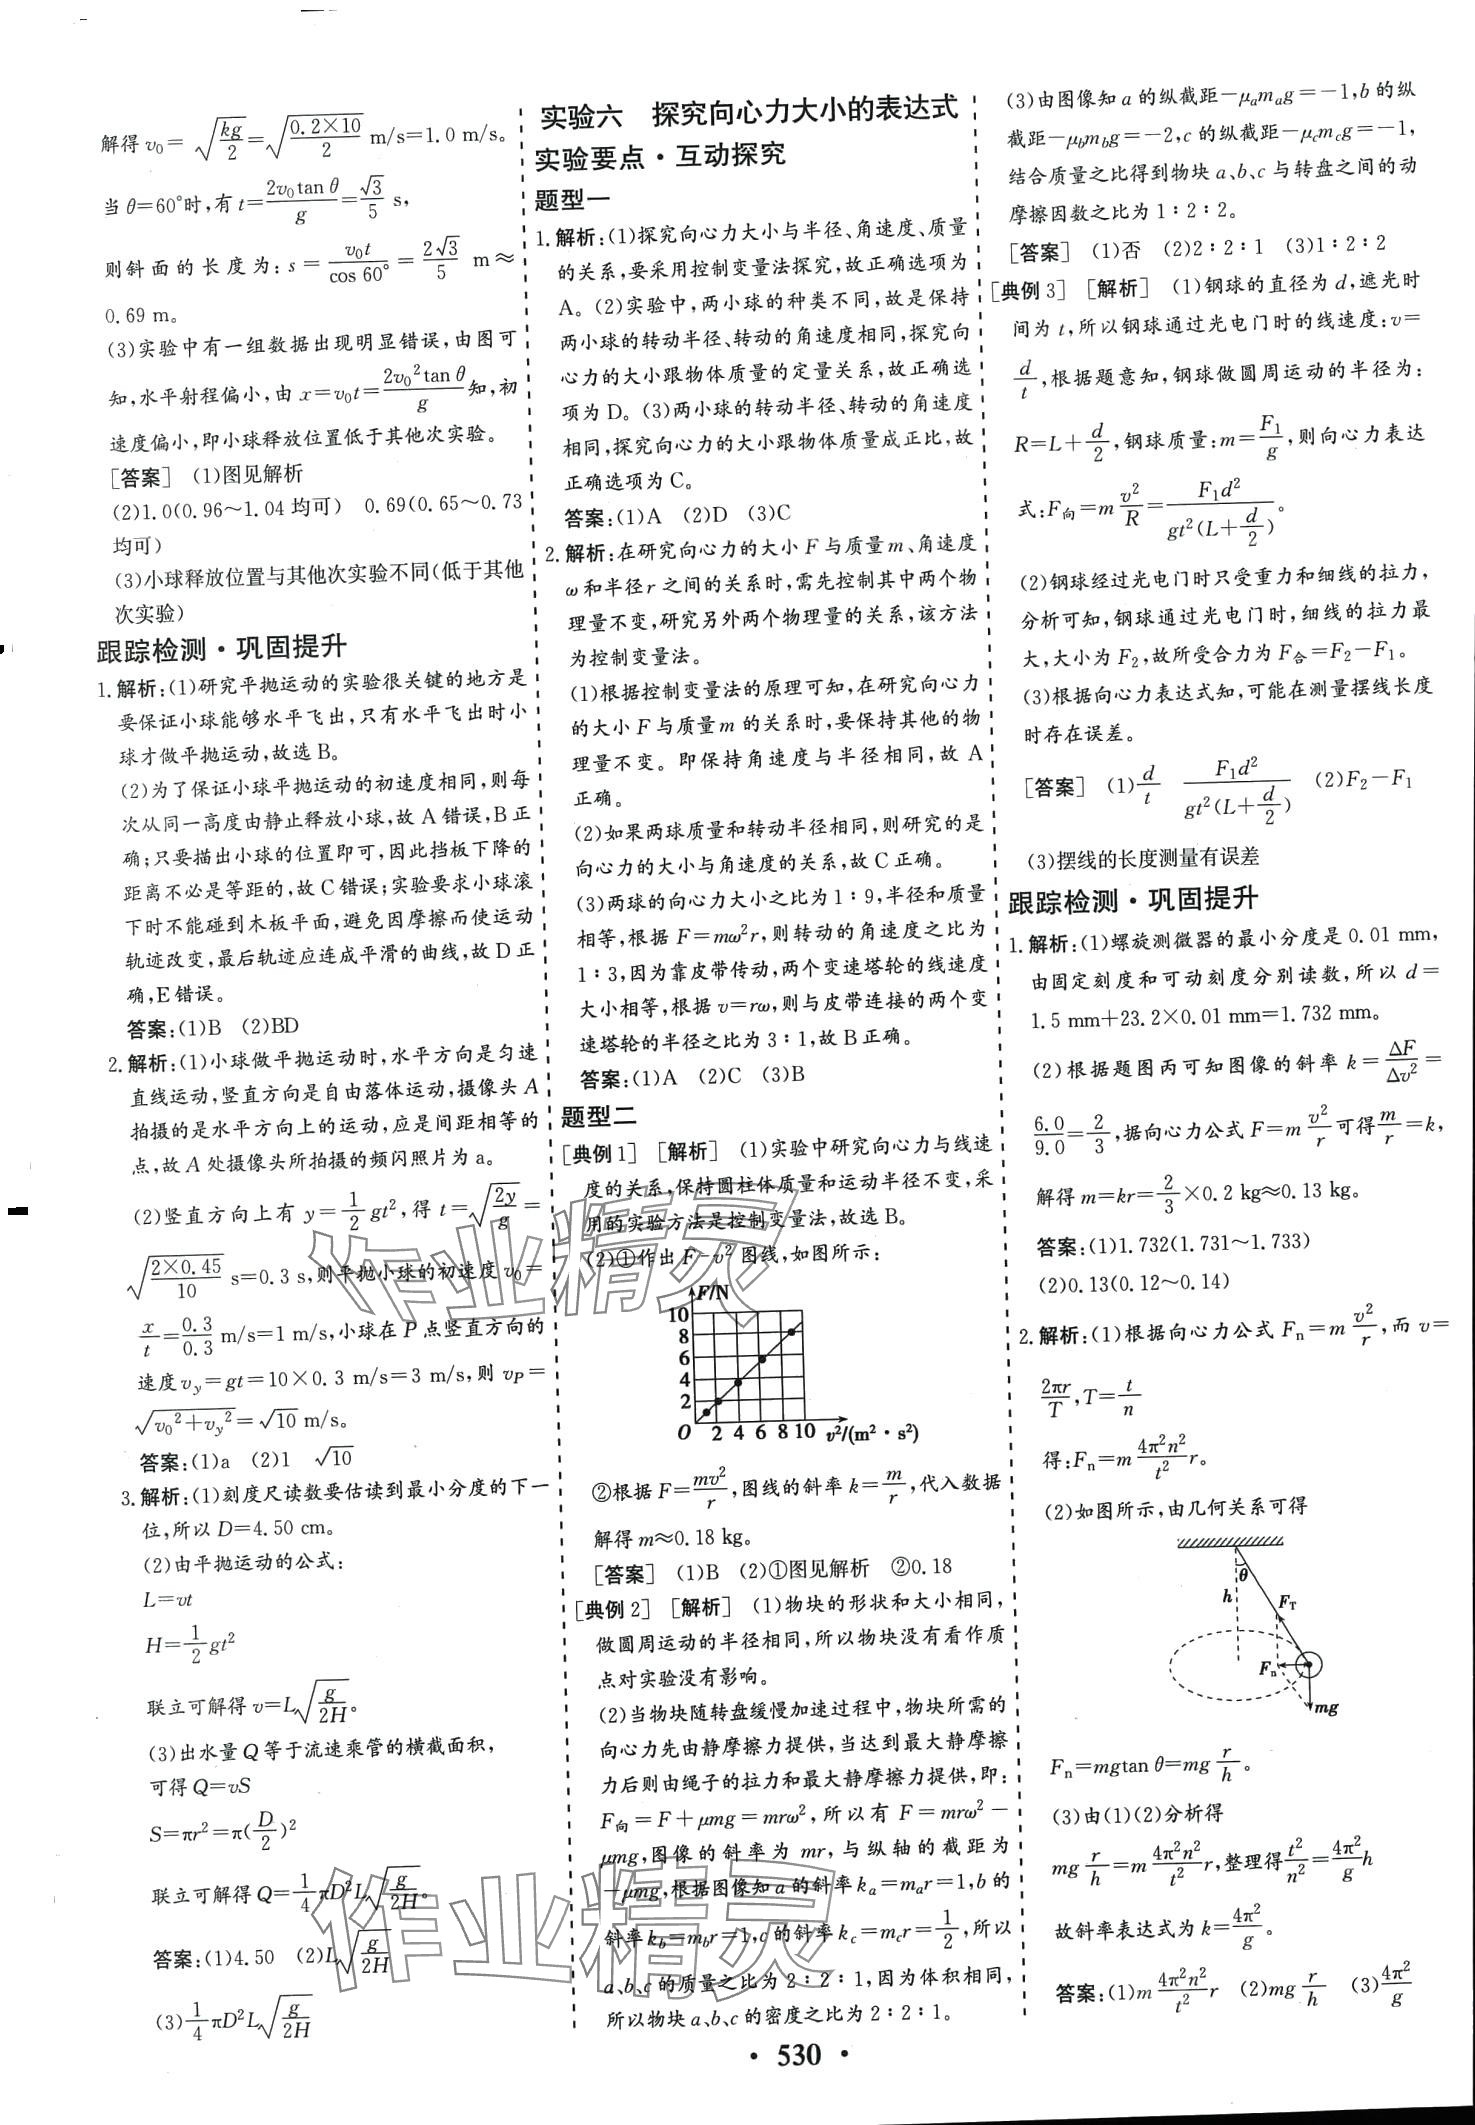 解得 v₀=√(kg/2)=√(0.2×10/2) m/s=1.0 m/s。
当 θ=60°时,有 t=2v₀tan θ/g=√3/5 s,
则斜面的长度为:s=v₀t/cos 60°=2√3/5 m≈
0.69 m。
(3)实验中有一组数据出现明显错误,由图可
知,水平射程偏小,由 x=v₀t=2v₀²tan θ/g知,初
速度偏小,即小球释放位置低于其他次实验。
[答案] (1)图见解析
(2)1.0(0.96~1.04均可) 0.69(0.65~0.73
均可)
(3)小球释放位置与其他次实验不同(低于其他
次实验)
跟踪检测·巩固提升
1.解析:(1)研究平抛运动的实验很关键的地方是
要保证小球能够水平飞出,只有水平飞出时小
球才做平抛运动,故选 B。
(2)为了保证小球平抛运动的初速度相同,则每
次从同一高度由静止释放小球,故 A 错误,B 正
确;只要描出小球的位置即可,因此挡板下降的
距离不必是等距的,故 C 错误;实验要求小球滚
下时不能碰到木板平面,避免因摩擦而使运动
轨迹改变,最后轨迹应连成平滑的曲线,故 D 正
确,E 错误。
答案:(1)B (2)BD
2.解析:(1)小球做平抛运动时,水平方向是匀速
直线运动,竖直方向是自由落体运动,摄像头 A
拍摄的是水平方向上的运动,应是间距相等的
点,故 A 处摄像头所拍摄的频闪照片为 a。
(2)竖直方向上有 y=1/2 gt²,得 t=√(2y/g)=
√(2×0.45/10) s=0.3 s,则平抛小球的初速度 v₀=
x/t=0.3/0.3 m/s=1 m/s,小球在 P 点竖直方向的
速度 v_y=gt=10×0.3 m/s=3 m/s,则 v_P=
√(v₀²+v_y²)=√10 m/s。
答案:(1)a (2)1 √10
3.解析:(1)刻度尺读数要估读到最小分度的下一
位,所以 D=4.50 cm。
(2)由平抛运动的公式:
L=vt
H=1/2 gt²
联立可解得 v=L√(g/2H)。
(3)出水量 Q 等于流速乘管的横截面积,
可得 Q=vS
S=πr²=π(D/2)²
联立可解得 Q=1/4 πD²L√(g/2H)。
答案:(1)4.50 (2)L√(g/2H)
(3)1/4 πD²L√(g/2H)
实验六 探究向心力大小的表达式
实验要点·互动探究
题型一
1.解析:(1)探究向心力大小与半径、角速度、质量
的关系,要采用控制变量法探究,故正确选项为
A。(2)实验中,两小球的种类不同,故是保持
两小球的转动半径、转动的角速度相同,探究向
心力的大小跟物体质量的定量关系,故正确选
项为 D。(3)两小球的转动半径、转动的角速度
相同,探究向心力的大小跟物体质量成正比,故
正确选项为 C。
答案:(1)A (2)D (3)C
2.解析:在研究向心力的大小 F 与质量 m、角速度
ω 和半径 r 之间的关系时,需先控制其中两个物
理量不变,研究另外两个物理量的关系,该方法
为控制变量法。
(1)根据控制变量法的原理可知,在研究向心力
的大小 F 与质量 m 的关系时,要保持其他的物
理量不变。即保持角速度与半径相同,故 A
正确。
(2)如果两球质量和转动半径相同,则研究的是
向心力的大小与角速度的关系,故 C 正确。
(3)两球的向心力大小之比为 1∶9,半径和质量
相等,根据 F=mω²r,则转动的角速度之比为
1∶3,因为靠皮带传动,两个变速塔轮的线速度
大小相等,根据 v=rω,则与皮带连接的两个变
速塔轮的半径之比为 3∶1,故 B 正确。
答案:(1)A (2)C (3)B
题型二
[典例1] [解析] (1)实验中研究向心力与线速
度的关系,保持圆柱体质量和运动半径不变,采
用的实验方法是控制变量法,故选 B。
(2)①作出 F-v² 图线,如图所示:
F/N
10
8
6
4
2
O 2 4 6 8 10 v²/(m²·s²)
②根据 F=mv²/r,图线的斜率 k=m/r,代入数据
解得 m≈0.18 kg。
[答案] (1)B (2)①图见解析 ②0.18
[典例2] [解析] (1)物块的形状和大小相同,
做圆周运动的半径相同,所以物块没有看作质
点对实验没有影响。
(2)当物块随转盘缓慢加速过程中,物块所需的
向心力先由静摩擦力提供,当达到最大静摩擦
力后则由绳子的拉力和最大静摩擦力提供,即:
F向=F+μmg=mrω²,所以有 F=mrω²-
μmg,图像的斜率为 mr,与纵轴的截距为
-μmg,根据图像知 a 的斜率 k_a=m_a r=1,b 的
斜率 k_b=m_b r=1,c 的斜率 k_c=m_c r=1/2,所以
a、b、c 的质量之比为 2∶2∶1,因为体积相同,
所以物块 a、b、c 的密度之比为 2∶2∶1。
(3)由图像知 a 的纵截距-μ_a m_a g=-1,b 的纵
截距-μ_b m_b g=-2,c 的纵截距-μ_c m_c g=-1,
结合质量之比得到物块 a、b、c 与转盘之间的动
摩擦因数之比为 1∶2∶2。
[答案] (1)否 (2)2∶2∶1 (3)1∶2∶2
[典例3] [解析] (1)钢球的直径为 d,遮光时
间为 t,所以钢球通过光电门时的线速度:v=
d/t,根据题意知,钢球做圆周运动的半径为:
R=L+d/2,钢球质量:m=F₁/g,则向心力表达
式:F向=m v²/R=F₁d²/(gt²(L+d/2))。
(2)钢球经过光电门时只受重力和细线的拉力,
分析可知,钢球通过光电门时,细线的拉力最
大,大小为 F₂,故所受合力为 F合=F₂-F₁。
(3)根据向心力表达式知,可能在测量摆线长度
时存在误差。
[答案] (1)d/t F₁d²/(gt²(L+d/2)) (2)F₂-F₁
(3)摆线的长度测量有误差
跟踪检测·巩固提升
1.解析:(1)螺旋测微器的最小分度是 0.01 mm,
由固定刻度和可动刻度分别读数,所以 d=
1.5 mm+23.2×0.01 mm=1.732 mm。
(2)根据题图丙可知图像的斜率 k=ΔF/Δv²=
6.0/9.0=2/3,据向心力公式 F=m v²/r可得m/r=k,
解得 m=kr=2/3×0.2 kg≈0.13 kg。
答案:(1)1.732(1.731~1.733)
(2)0.13(0.12~0.14)
2.解析:(1)根据向心力公式 Fₙ=m v²/r,而 v=
2πr/T,T=t/n
得:Fₙ=m 4π²n²/t² r。
(2)如图所示,由几何关系可得
θ
h
F_T
Fₙ
mg
Fₙ=mgtan θ=mg r/h。
(3)由(1)(2)分析得
mg r/h=m 4π²n²/t² r,整理得t²/n²=4π²/g h
故斜率表达式为 k=4π²/g。
答案:(1)m 4π²n²/t² r (2)mg r/h (3)4π²/g
作业精灵
作业精灵
· 530 ·